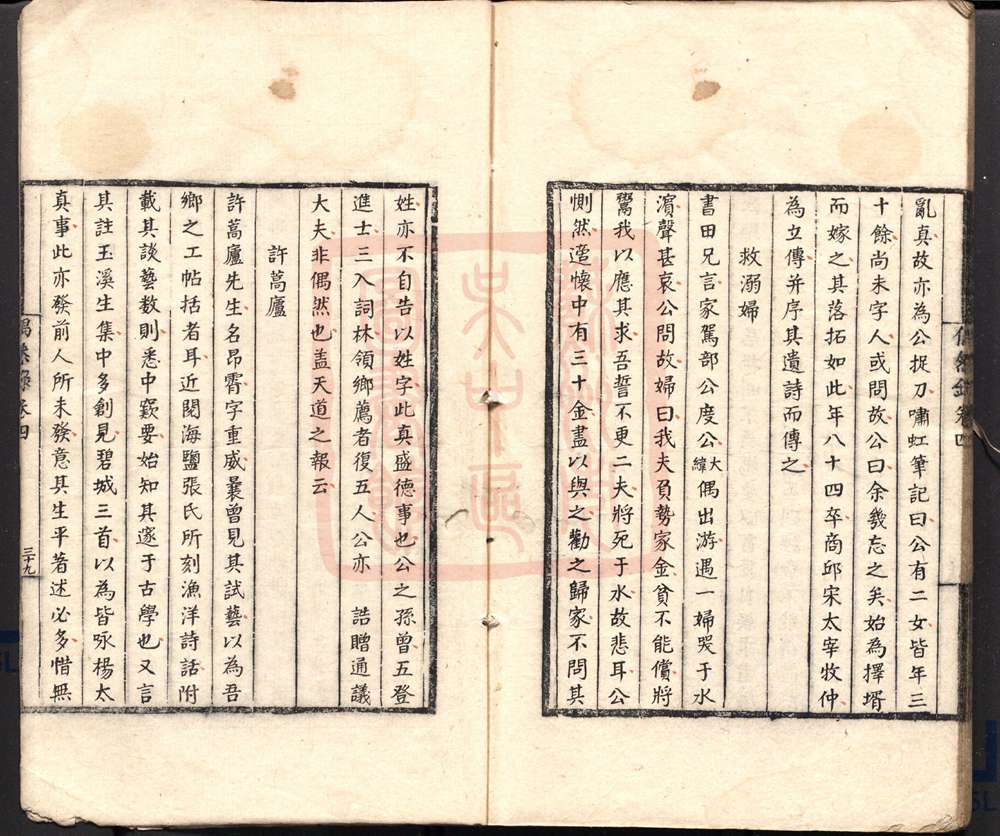 亂真故亦為公捉刀嘯虹筆記曰公有二女皆年三
十餘尚未字人或問故公曰余㡬忘之矣始為擇壻
而嫁之其落拓如此年八十四卒商邱宋太宰牧仲
為立傳并序其遺詩而傳之
救溺婦
書田兄言家駕部公度公大緯偶出游遇一婦哭于水
濵聲甚哀公問故婦曰我夫負勢家金貧不能償將
鬻我以應其求吾誓不更二夫將死于水故悲耳公
惻然遣懷中有三十金盡以與之勸之歸家不問其
姓亦不自告以姓字此真盛德事也公之孫曾五登
進士三入詞林領鄉薦者復五人公亦 誥贈通議
大夫非偶然也盖天道之報云
許蒿廬
許蒿廬先生名昂霄字重威曩曾見其試藝以為吾
鄉之工帖括者耳近閱海鹽張氏所刻漁洋詩話附
載其談藝数則悉中窾要始知其邃于古學也又言
其註玉溪生集中多創見碧城三首以為皆咏楊太
真事此亦發前人所未發意其生平著述必多惜無
卷四
三十九